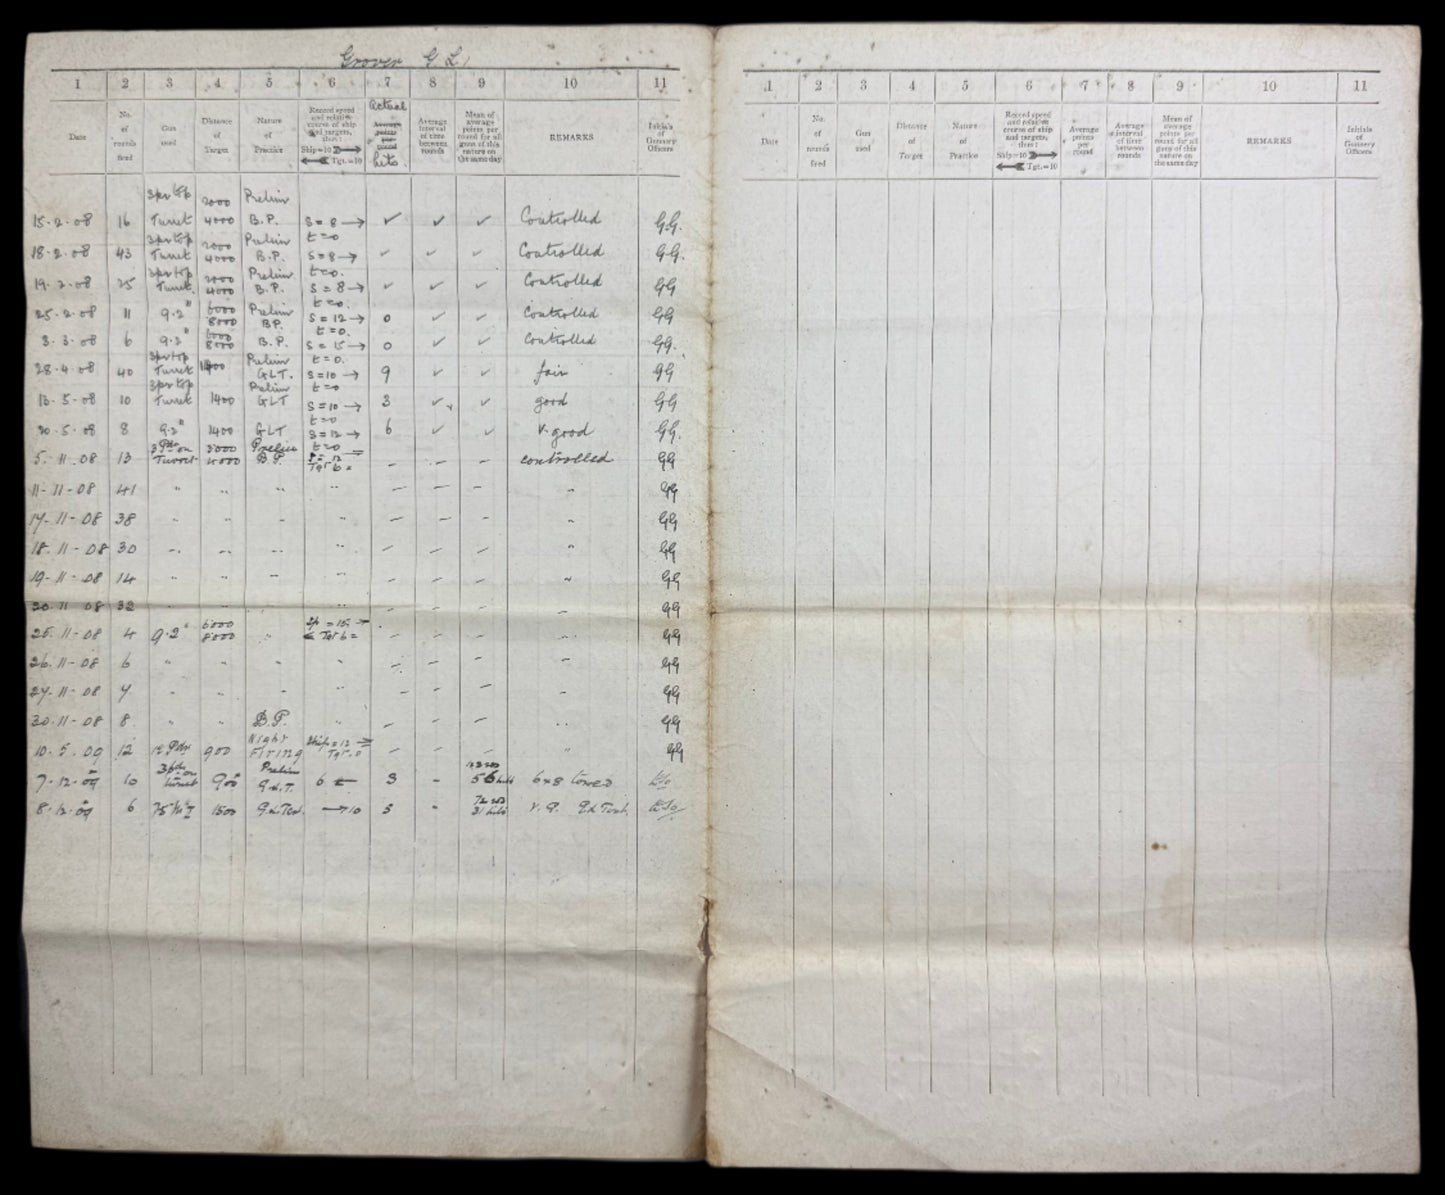 Grover G L
1 2 3 4 5 6 7 8 9 10 11
Date
No. of rounds fired
Gun used
Distance of Target
Nature of Practice
Record speed and relative course of ship and targets, thus: Ship=10 Tgt.=10
Actual
Average points per round
hits
Average interval of time between rounds
Mean of average points per round for all guns of this nature on the same day
REMARKS
Initials of Gunnery Officers
3pr top 2000 Prelim
15·2·08 16 Turret 4000 B.P. S=8→ ✓ ✓ ✓ Controlled GG.
3pr top 2000 Prelim t=0
18·2·08 43 Turret 4000 B.P. S=8→ ✓ ✓ ✓ Controlled GG.
3pr top 2000 Prelim t=0.
19·2·08 25 Turret 4000 B.P. S=8→ ✓ ✓ ✓ Controlled GG
6000 Prelim t=0.
25·2·08 11 9·2" 8000 BP. S=12→ 0 ✓ ✓ Controlled GG
6000 t=0.
3·3·08 6 9·2" 8000 B.P. S=15→ 0 ✓ ✓ Controlled GG.
3pr top Prelim t=0.
28·4·08 40 Turret 1400 GLT. S=10→ 9 ✓ ✓ fair GG
3pr top Prelim t=0
13·5·08 10 Turret 1400 GLT S=10→ 3 ✓ ✓ good GG
t=0
20·5·08 8 9·2" 1400 GLT S=12→ 6 ✓ ✓ v. good GG.
3Pdr on 3000 Prelim t=0
5·11·08 13 Turret 4000 B.P. S=12 Tgt 6= – – – controlled GG
11-11-08 41 " " " " – – – " GG
17-11-08 38 " " " " – – – " GG
18·11-08 30 " " " " – – – " GG
19-11-08 14 " " " " – – – " GG
20·11·08 32 " " " " – – – GG
6000 Sp=15→
25·11-08 4 9·2" 8000 " ← Tgt 6= – – – " GG
26·11-08 6 " " " " – – – " GG
27·11-08 7 " " " " – – – " GG
30·11-08 8 " " B.P. " – – – " GG
Night Ship=12→
10·5·09 12 12 Pdr 900 Firing Tgt=0 – – – " GG
3pdr on Prelim
7·12·09 10 turret 900 G.L.T. 6← 3 – 56 hits 6x8 towed
72 rds
8·12·09 6 1500 G.L.Test →10 5 " 31 hits V. P. Gd Test.
1 2 3 4 5 6 7 8 9 10 11
Date
No. of rounds fired
Gun used
Distance of Target
Nature of Practice
Record speed and relative course of ship and targets, thus: Ship=10 Tgt.=10
Average points per round
Average interval of time between rounds
Mean of average points per round for all guns of this nature on the same day
REMARKS
Initials of Gunnery Officers